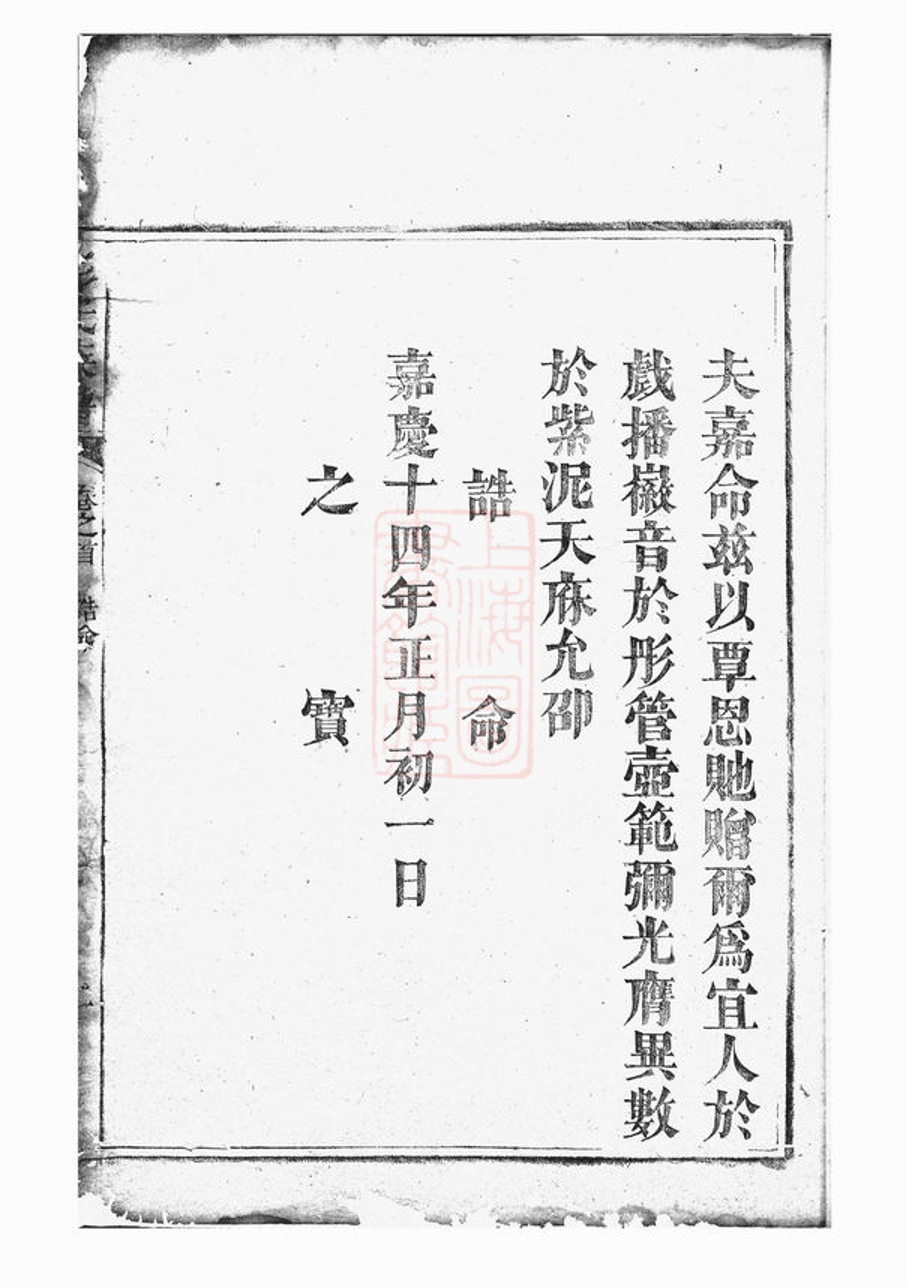 夫嘉命茲以覃恩貤贈爾爲宜人於
戲播徽音於彤管壺範彌光膺異數
於紫泥天庥允卲
誥命
嘉慶十四年正月初一日
之寶
卷之首 誥命
上海圖